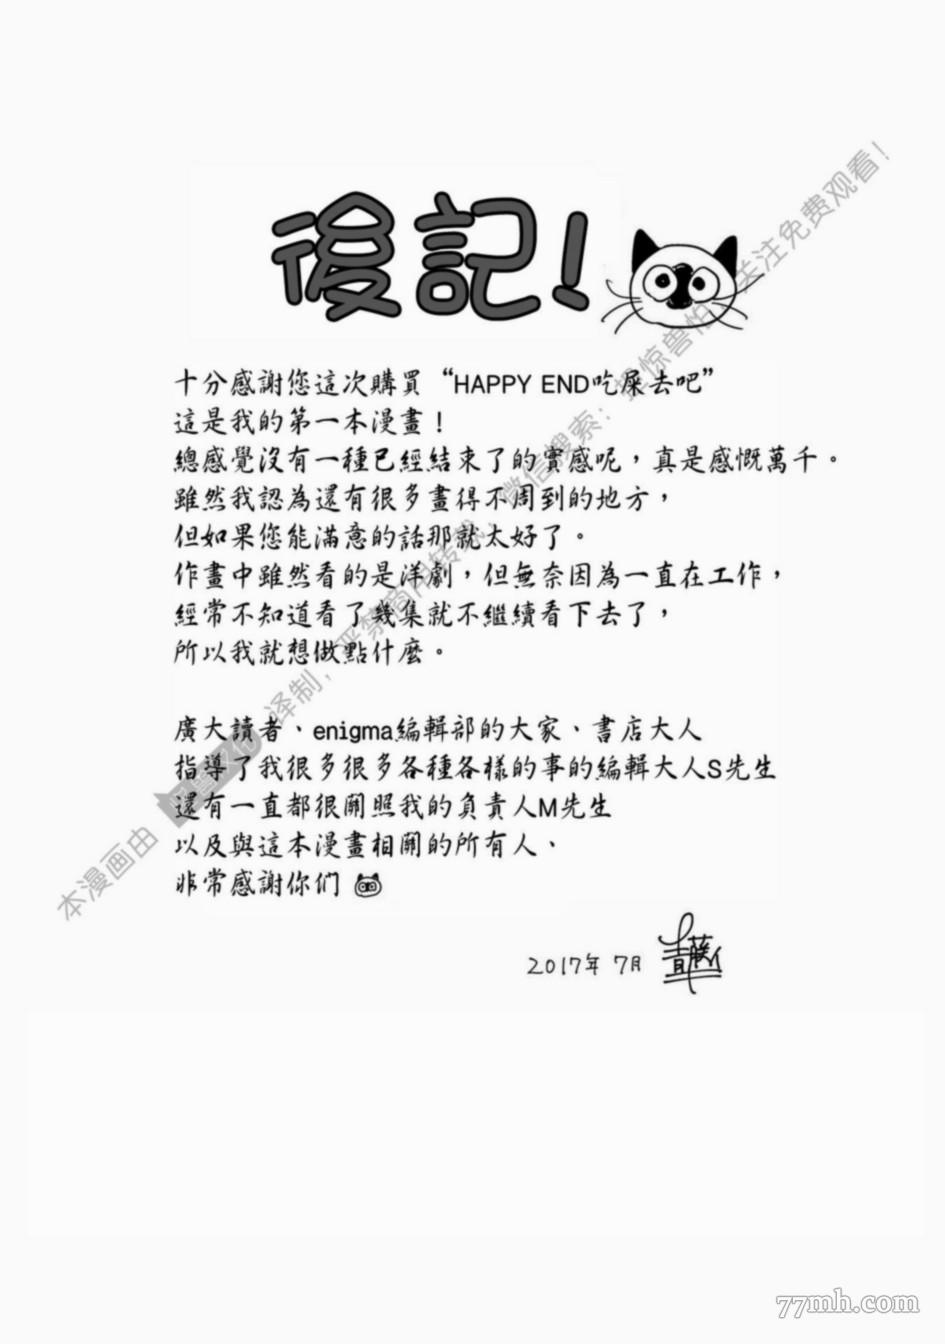 後記!
十分感謝您這次購買“HAPPY END吃屎去吧”
這是我的第一本漫畫!
總感覺沒有一種已經結束了的實感呢,真是感慨萬千。
雖然我認為還有很多畫得不周到的地方,
但如果您能滿意的話那就太好了。
作畫中雖然看的是洋劇,但無奈因為一直在工作,
經常不知道看了幾集就不繼續看下去了,
所以我就想做點什麼。
廣大讀者、enigma編輯部的大家、書店大人
指導了我很多很多各種各樣的事的編輯大人S先生
還有一直都很關照我的負責人M先生
以及與這本漫畫相關的所有人、
非常感謝你们
2017年 7月
本漫画由 译制,严禁商用转载,微信搜索: 惊兽怕 关注免费观看!
77mh.com